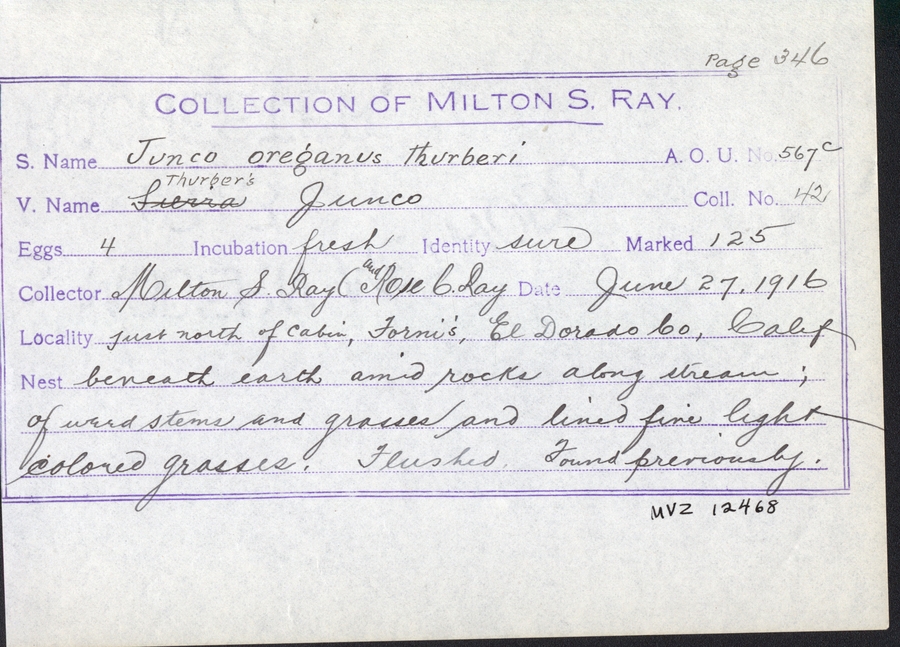 Page 346
COLLECTION OF MILTON S. RAY.
S. Name Junco oreganus thurberi A. O. U. No. 567c
Thurber's
V. Name Sierra Junco Coll. No. 42
Eggs 4 Incubation fresh Identity sure Marked 125
Collector Milton S. Ray (and Rose C. Ray Date June 27, 1916
Locality just north of cabin, Forni's, El Dorado Co, Calif
Nest beneath earth amid rocks along stream ;
of weed stems and grasses and lined fine light
colored grasses. Flushed. Found previously.
MVZ 12468